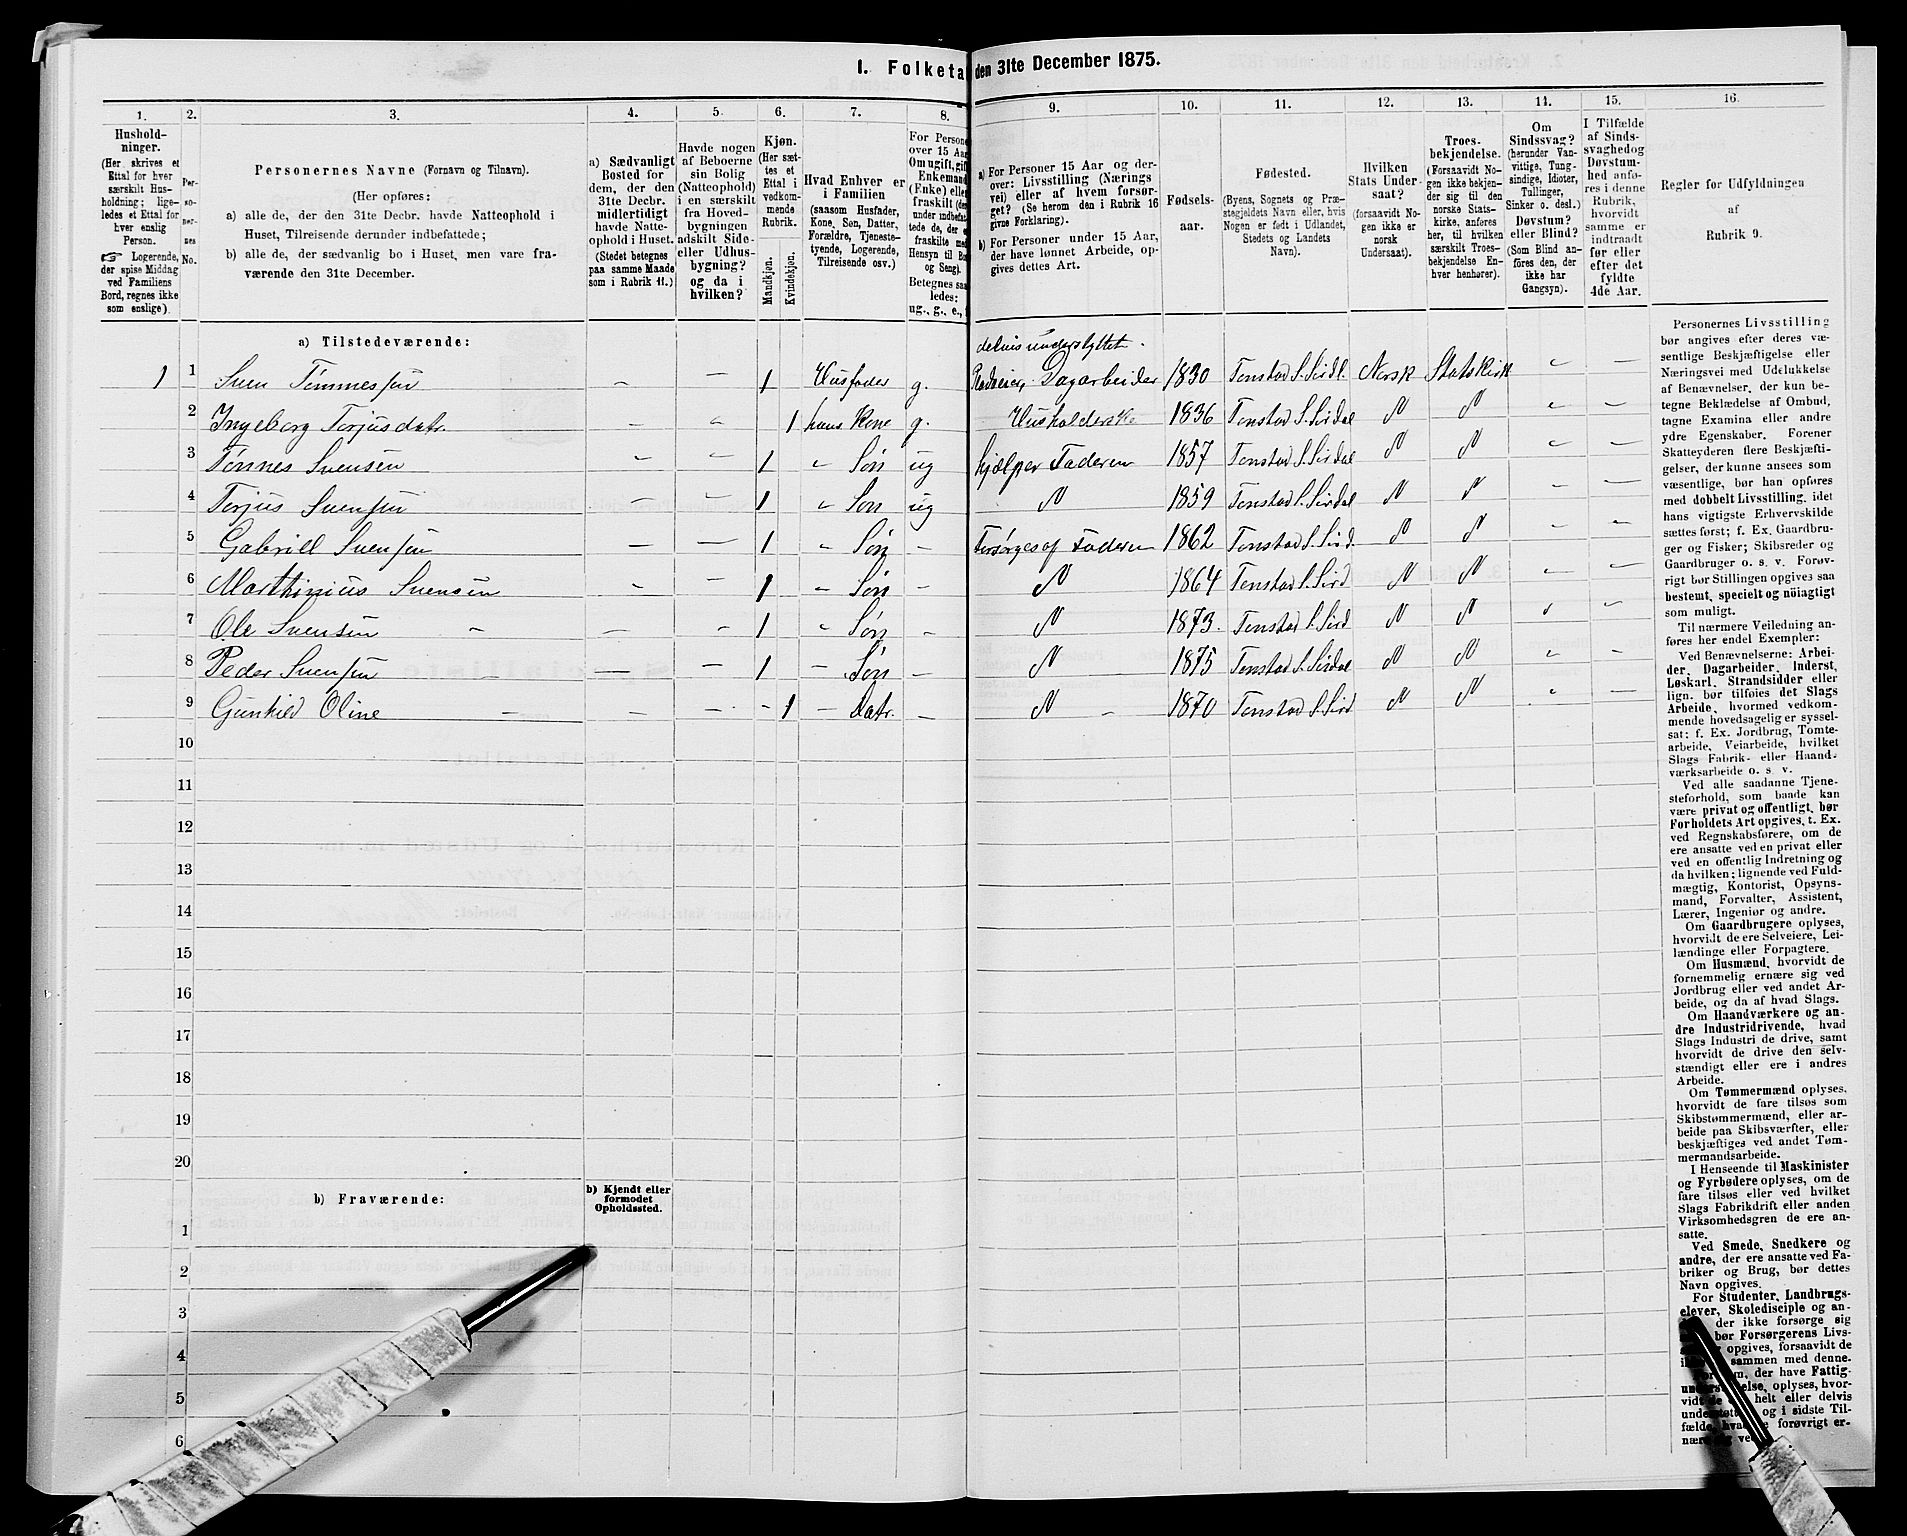 I. Folketæ den 31te December 1875.
1. 2. 3. 4. 5. 6. 7. 8. 9. 10. 11. 12. 13. 14. 15. 16.
Hushold-
ninger.
(Her skrives et
Ettal for hver
særskilt Hus-
holdning; lige-
ledes et Ettal for
hver enslig
Person.
☞ Logerende,
der spise Middag
ved Familiens
Bord, regnes ikke
som enslige).
Per-
so-
ner-
nes
No.
Personernes Navne (Fornavn og Tilnavn).
(Her opføres:
a) alle de, der den 31te Decbr. havde Natteophold i
Huset, Tilreisende derunder indbefattede;
b) alle de, der sædvanlig bo i Huset, men vare fra-
værende den 31te December.
a) Sædvanligt
Bosted for
dem, der den
31te Decbr.
midlertidigt
havde Natte-
ophold i Huset.
(Stedet betegnes
paa samme Maade
som i Rubrik 11.)
Havde nogen
af Beboerne
sin Bolig
(Natteophold)
i en særskilt
fra Hoved-
bygningen
adskilt Side-
eller Udhus-
bygning?
og da i
hvilken?
Kjøn.
(Her sæt-
tes et
Ettal i
vedkom-
mende
Rubrik.
Mandkjøn.
Kvindekjøn.
Hvad Enhver er
i Familien
(saasom Husfader,
Kone, Søn, Datter,
Forældre, Tjeneste-
tyende, Logerende,
Tilreisende osv.)
For Persone
over 15 Aa
Om ugift, gift
Enkemand
(Enke) elle
fraskilt (de
under indbefat
tede de, de
fraskilte me
Hensyn til Bo
og Seng).
Betegnes saa
ledes:
ug., g., e.,
a) For Personer 15 Aar og der-
over: Livsstilling (Nærings
vei) eller af hvem forsør-
get? (Se herom den i Rubrik 16
givne Forklaring).
b) For Personer under 15 Aar,
der have lønnet Arbeide, op-
gives dettes Art.
Fødsels-
aar.
Fødested.
(Byens, Sognets og Præ-
stegjeldets Navn eller, hvis
Nogen er født i Udlandet,
Stedets og Landets
Navn).
Hvilken
Stats Under-
saat?
(forsaavidt No-
gen ikke er
norsk
Undersaat).
Troes-
bekjendelse.
(Forsaavidt No-
gen ikke bekjen-
der sig til den
norske Stats-
kirke, anføres
her, til hvilken
særskilt Troes-
bekjendelse En-
hver henhører).
Om
Sindssvag?
(herunder Van-
vittige, Tung-
sindige, Idioter,
Tullinger,
Sinker o. desl.)
Døvstum?
eller Blind?
(Som Blind an-
føres den, der
ikke har
Gangsyn).
I Tilfælde
af Sinds-
svaghed og
Døvstum-
hed anfø-
res i denne
Rubrik,
hvorvidt
samme er
indtraadt
før eller
efter det
fyldte
4de Aar.
Regler for Udfyldningen
af
Rubrik 9.
a) Tilstedeværende: delvis understyttet.
1 1 Sven Tønnessen - - 1 Husfader g. Dagarbeider 1830 Tonstad S. Sirdl. Norsk Statskirk - -
2 Ingeborg Torjusdatr. - - 1 hans Kone g. Husholderske 1836 Tonstad S. Sirdal N N - -
3 Tønnes Svensen - - 1 - Søn ug hjælper Faderen 1857 Tonstad S. Sirdal N N - -
4 Torjus Svensen - - 1 - Søn ug N 1859 Tonstad S. Sirdal N N - -
5 Gabriell Svensen - - 1 - Søn - Forsørges af Faderen 1862 Tonstad S. Sird. N N - -
6 Marthinius Svensen - - 1 - Søn - N 1864 Tonstad S. Sird N N - -
7 Ole Svensen - - - 1 - Søn - N 1873. Tonstad S. Sird N N - -
8 Peder Svensen - - - 1 - Søn - N 1875 Tonstad S. Sirdal N N - -
9 Gunhild Oline - - - - 1 - Datr. - N - 1870 Tonstad S. Sird N N - -
10
11
12
13
14
15
16
17
18
19
20
b) Fraværende: b) Kjendt eller
formodet
Opholdssted.
1
2
3
4
5
6
Personernes Livsstilling
bør angives efter deres væ-
sentlige Beskjæftigelse eller
Næringsvei med Udelukkelse
af Benævnelser, der kun be-
tegne Beklædelse af Ombud,
tagne Examina eller andre
ydre Egenskaber. Forener
Skatteyderen flere Beskjæfti-
gelser, der kunne ansees som
væsentlige, bør han opføres
med dobbelt Livsstilling, idet
hans vigtigste Erhvervskilde
sættes først; f. Ex. Gaardbru-
ger og Fisker; Skibsreder og
Gaardbruger o. s. v. Forøv-
rigt bør Stillingen opgives saa
bestemt, specielt og nöiagtigt
som muligt.
Til nærmere Veiledning an-
føres her endel Exempler:
Ved Benævnelserne: Arbei-
der, Dagarbeider, Inderst,
Løskarl, Strandsidder eller
lign. bør tilføies det Slags
Arbeide, hvormed vedkom-
mende hovedsagelig er syssel-
sat: f. Ex. Jordbrug, Tomte-
arbeide, Veiarbeide, hvilket
Slags Fabrik- eller Haand-
værksarbeide o. s. v.
Ved alle saadanne Tjene-
steforhold, som baade kan
være privat og offentligt, bør
Forholdets Art opgives, t. Ex.
ved Regnskabsførere, om de
ere ansatte ved en privat eller
ved en offentlig Indretning og
da hvilken; lignende ved Fuld-
mægtig, Kontorist, Opsyns-
mand, Forvalter, Assistent,
Lærer, Ingeniør og andre.
Om Gaardbrugere oplyses,
hvorvidt de ere Selveiere, Lei-
lændinge eller Forpagtere.
Om Husmænd, hvorvidt de
fornemmelig ernære sig ved
Jordbrug eller ved andet Ar-
beide, og da af hvad Slags.
Om Haandværkere og an-
dre Industridrivende, hvad
Slags Industri de drive, samt
hvorvidt de drive den selv-
stændigt eller ere i andres
Arbeide.
Om Tømmermænd oplyses,
hvorvidt de fare tilsøs som
Skibstømmermænd, eller ar-
beide paa Skibsværfter, eller
beskjæftiges ved andet Tøm-
mermandsarbeide.
I Henseende til Maskinister
og Fyrbødere oplyses, om de
fare tilsøs eller ved hvilket
Slags Fabrikdrift eller anden
Virksomhedsgren de ere an-
satte.
Ved Smede, Snedkere og
andre, der ere ansatte ved Fa-
briker og Brug, bør dettes
Navn opgives.
For Studenter, Landbrugs-
elever, Skoledisciple og an-
der ikke forsørge sig
bør Forsørgerens Livs-
opgives, forsaavidt de
sammen med denne.
der have Fattig-
oplyses, hvor-
helt eller delvis
og i sidste Til-
forøvrigt er-